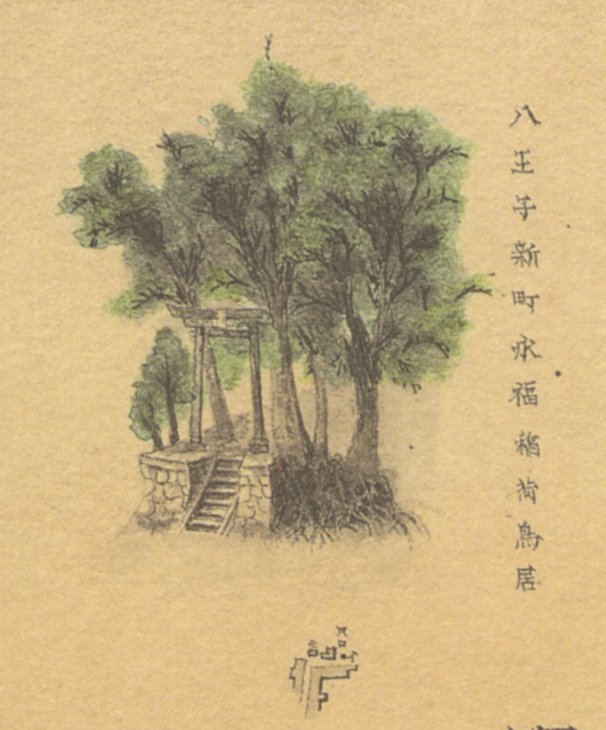 八王子新町永福稲荷鳥居